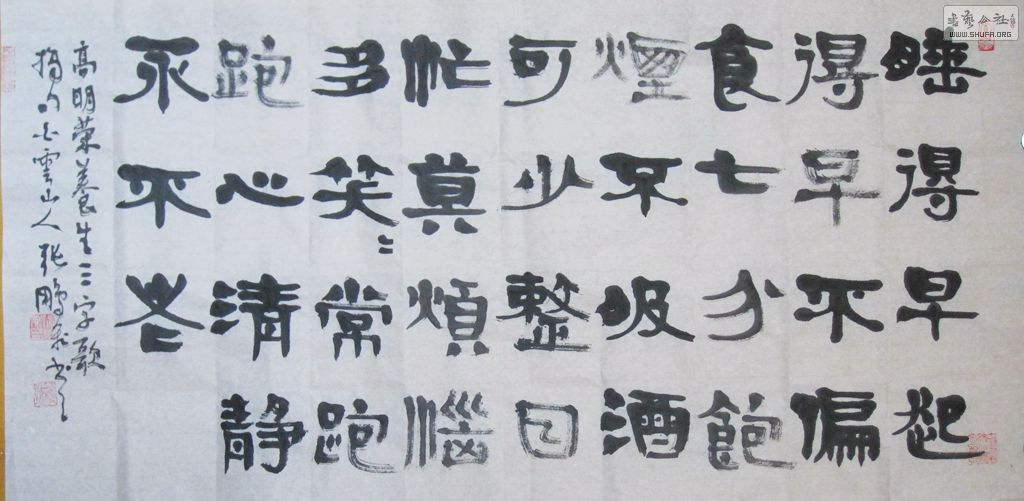 書藝公社
WWW.SHUFA.ORG
睡得早起
得早不偏
食七分飽
煙不吸酒
可少整日
忙莫煩惱
多笑〻常跑
跑心清静
永不老
高明榮養生三字歌
雲山人张鵬